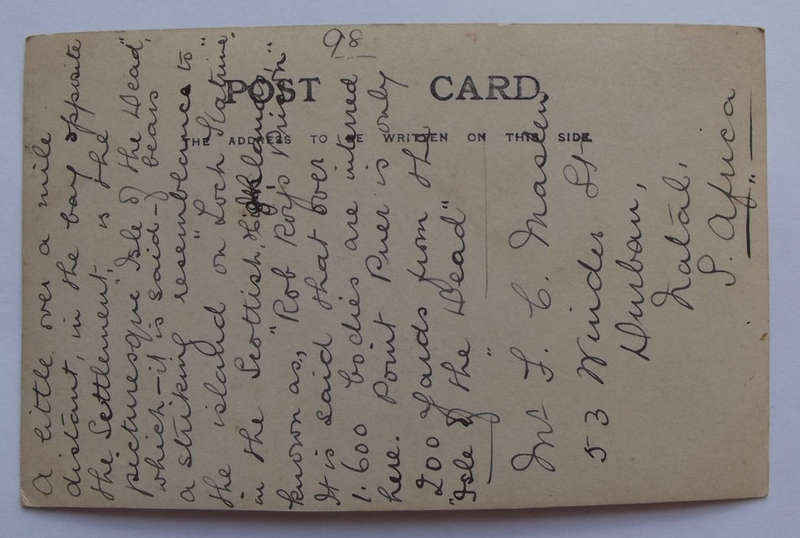 98
POST CARD
THE ADDRESS TO BE WRITTEN ON THIS SIDE
A little over a mile
distant, in the bay opposite
the "Settlement", is the
picturesque "Isle of the Dead",
which - it is said - bears
a striking resemblance to
the island on "Loch Katrine"
in the Scottish Highlands
known as, "Rob Roy's Prison"
It is said that over
1.600 bodies are interred
here. Point Puer is only
200 yards from the
"Isle of the Dead"
Mr. F. C.
53 Winder St
Durban,
Natal,
S. Africa